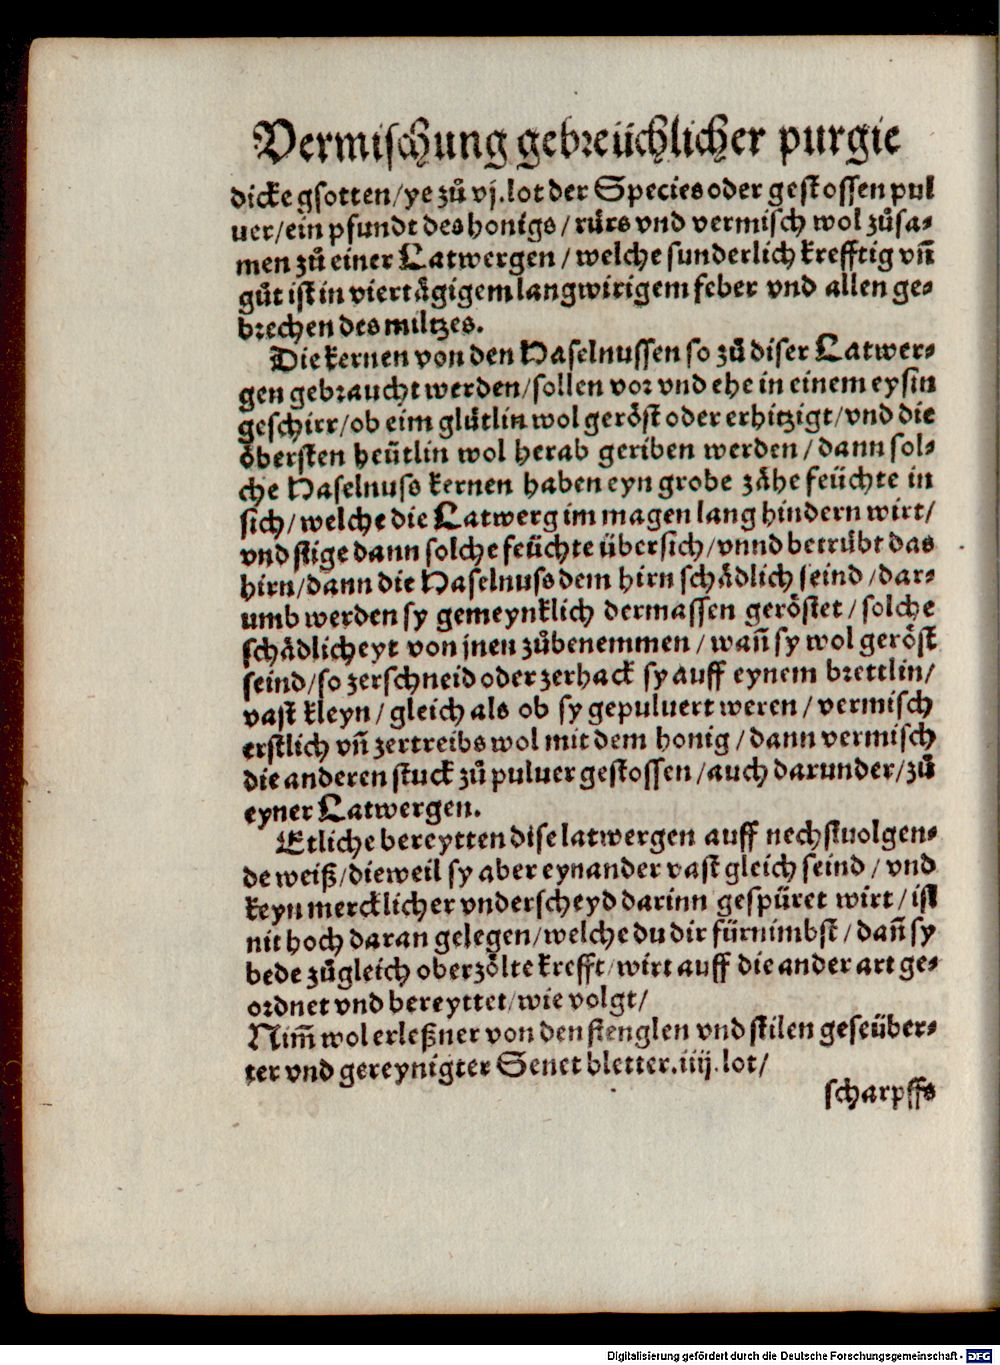 Vermischung gebreüchlicher purgie
dicke gsotten/ye zů vj.lot der Species oder gestossen pul
uer/ein pfundt des honigs/rürs vnd vermisch wol zůsa-
men zů einer Latwergen/welche sunderlich krefftig vn̄
gůt ist in viertägigem langwirigem feber vnd allen ge-
brechen des miltzes.
Die kernen von den Haselnussen so zů diser Latwer-
gen gebraucht werden/sollen vor vnd ehe in einem eysin
geschirr/ob eim glůtlin wol geröst oder erhitzigt/vnd die
öbersten heütlin wol herab geriben werden/dann sol-
che Haselnuss kernen haben eyn grobe zähe feüchte in
sich/welche die Latwerg im magen lang hindern wirt/
vnd stige dann solche feüchte übersich/vnnd betrübt das
hirn/dann die Haselnuss dem hirn schädlich seind/dar-
umb werden sy gemeynklich dermassen geröstet/solche
schädlicheyt von jnen zůbenemmen/wan̄ sy wol geröst
seind/so zerschneid oder zerhack sy auff eynem brettlin/
vast kleyn/gleich als ob sy gepuluert weren/vermisch
erstlich vn̄ zertreibs wol mit dem honig/dann vermisch
die anderen stuck zů puluer gestossen/auch darunder/zů
eyner Latwergen.
Etliche bereytten dise latwergen auff nechstuolgen-
de weiß/dieweil sy aber eynander vast gleich seind/vnd
keyn mercklicher vnderscheyd darinn gespüret wirt/ist
nit hoch daran gelegen/welche du dir fürnimbst/dan̄ sy
bede zůgleich oberzölte krefft/wirt auff die ander art ge-
ordnet vnd bereyttet/wie volgt/
Nim̄ wol erleßner von den stenglen vnd stilen geseüber-
ter vnd gereynigter Senet bletter.iiij.lot/
scharpffs
Digitalisierung gefördert durch die Deutsche Forschungsgemeinschaft - DFG